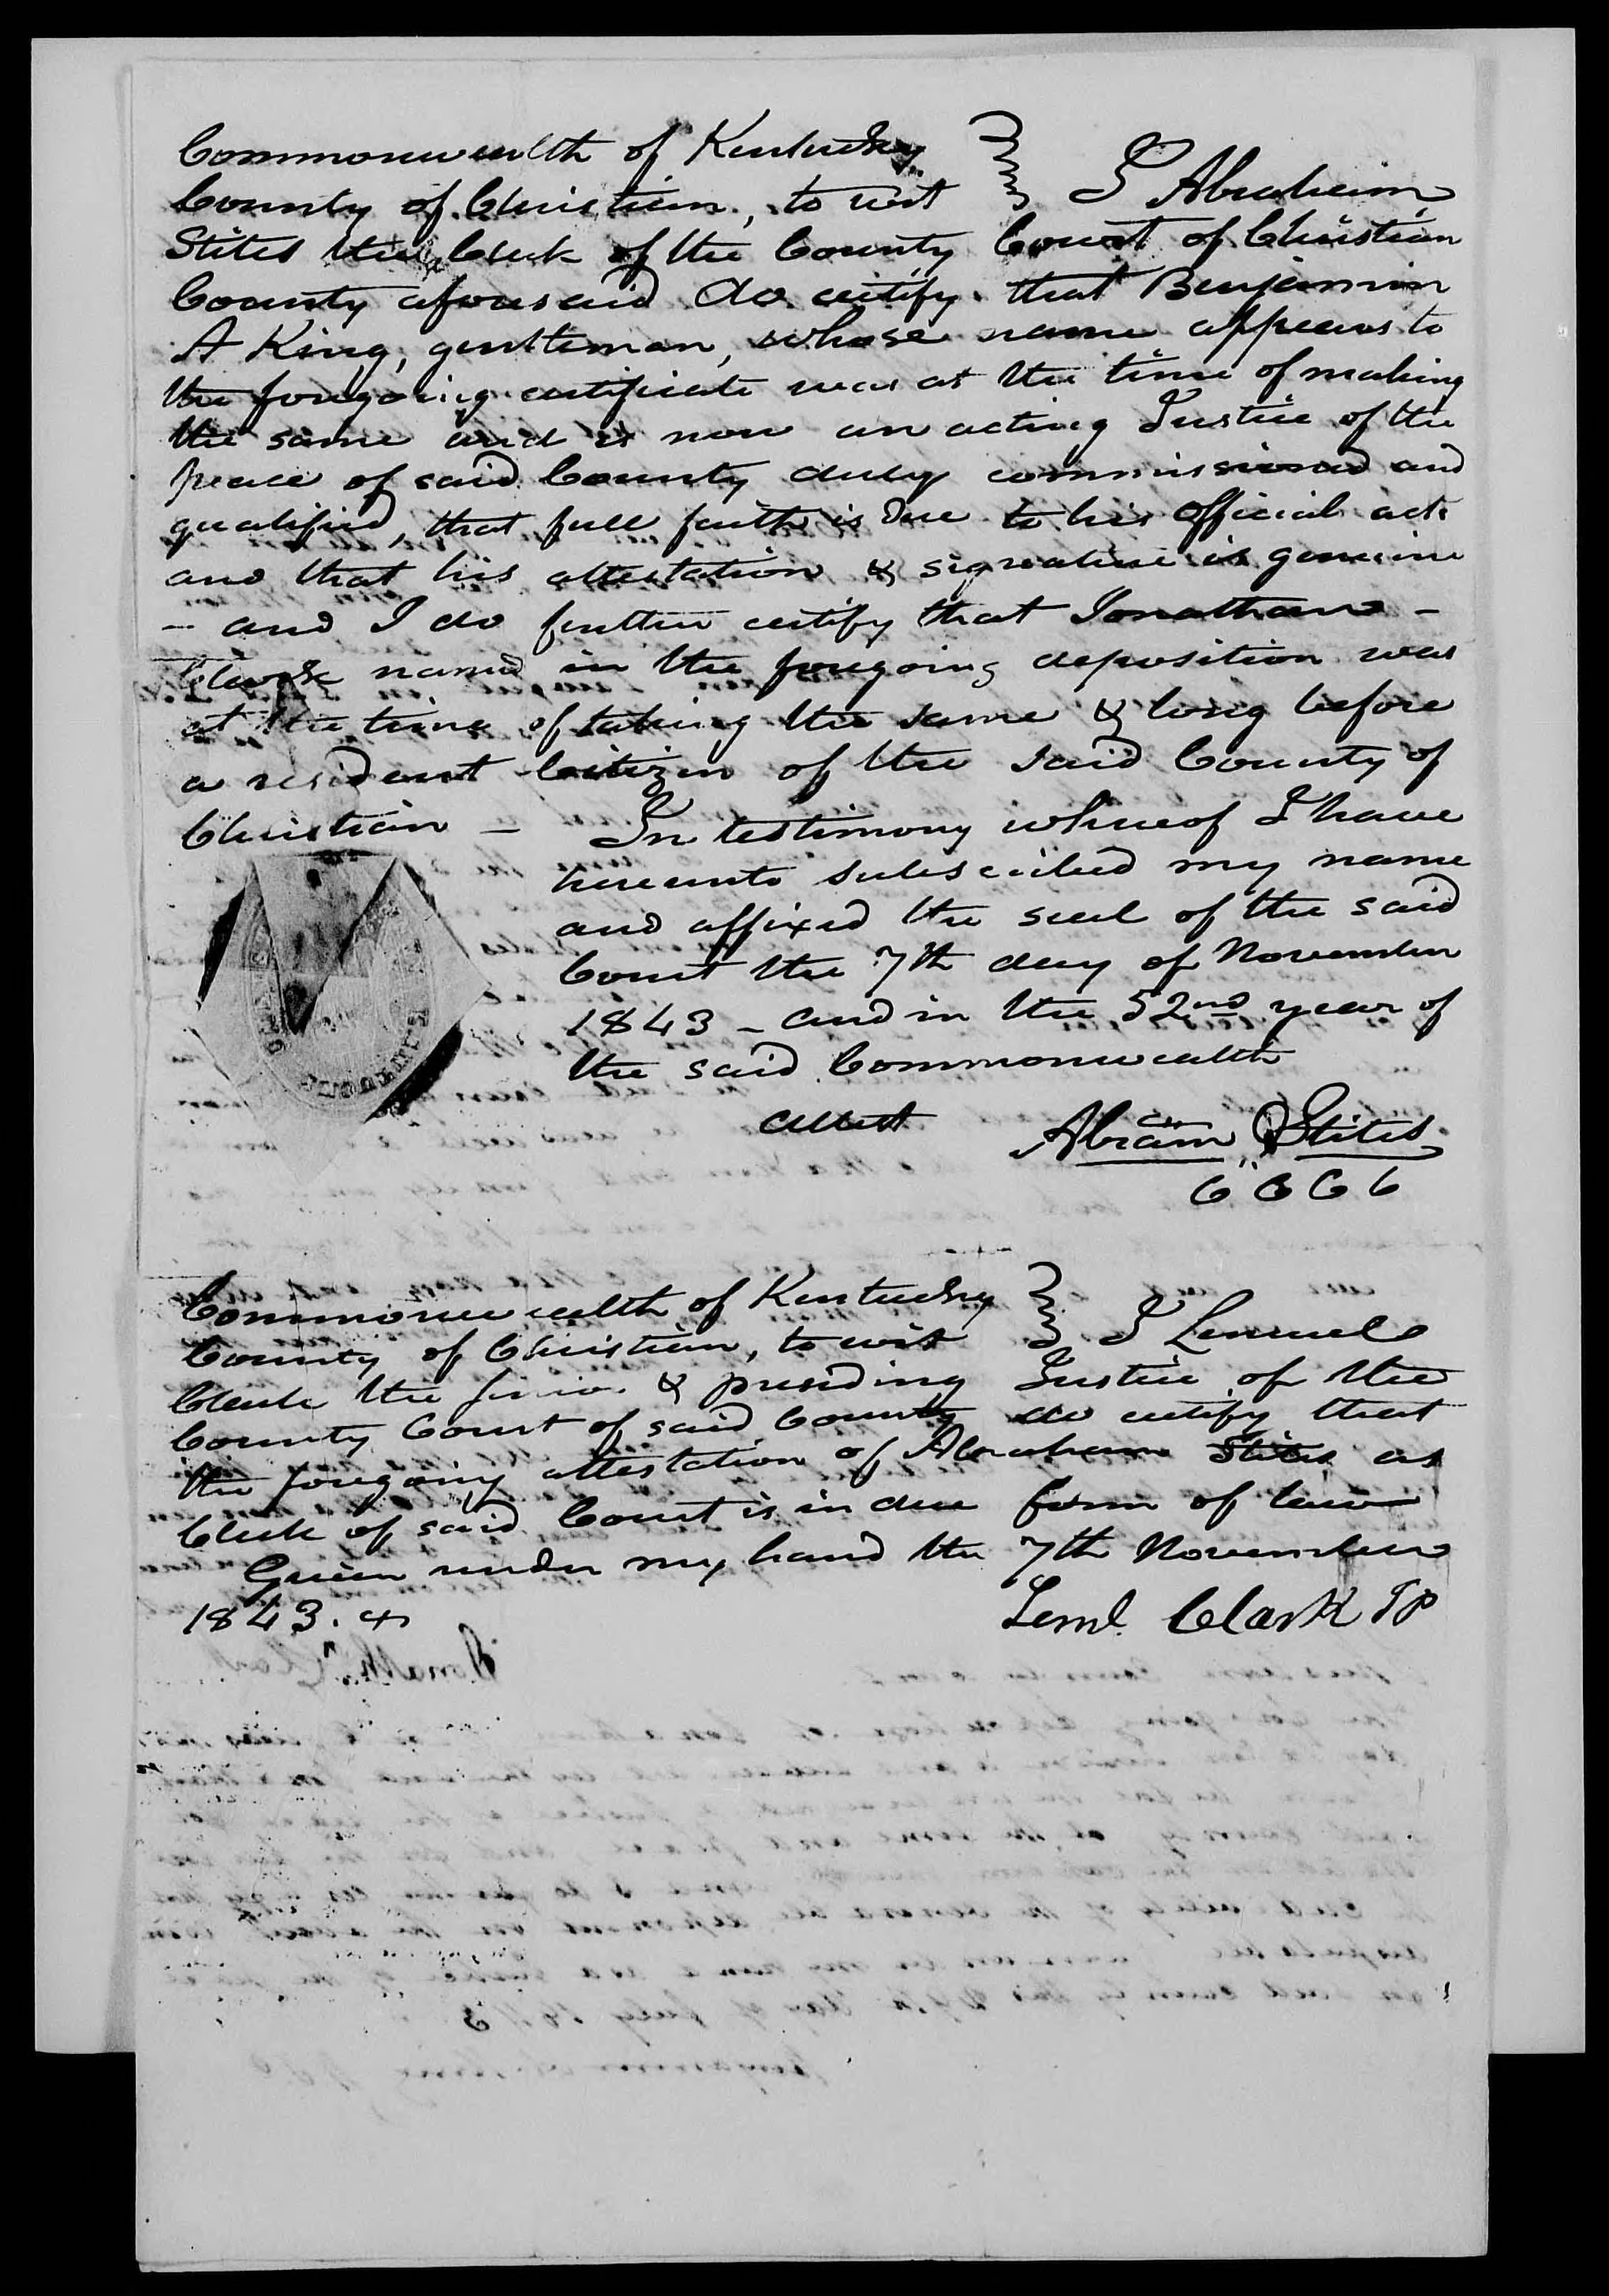 Commonwealth of Kentucky
County of Christian, to wit } I Abraham
Stites the Clerk of the County Court of Christian
County aforesaid do certify that Benjamin
A King, gentleman, whose name appears to
the foregoing certificate was at the time of making
the same and is now an acting Justice of the
peace of said County duly commissioned and
qualified, that full faith is due to his official acts
and that his attestation & signature is genuine
- and I do further certify that Jonathan -
Clark named in the foregoing deposition was
at the time of taking the same & long before
a resident Citizen of the said County of
Christian - In testimony whereof I have
hereunto subscribed my name
and affixed the seal of the said
Court the 7th day of November
1843 - and in the 52nd year of
the said Commonwealth
attest Abram Stites
C C C C
Commonwealth of Kentucky
County of Christian, to wit } I Lemuel
Clark the senior & presiding Justice of the
County Court of said County do certify that
the foregoing attestation of Abraham Stites as
Clerk of said Court is in due form of law
Given under my hand the 7th November
1843. Leml. Clark JP